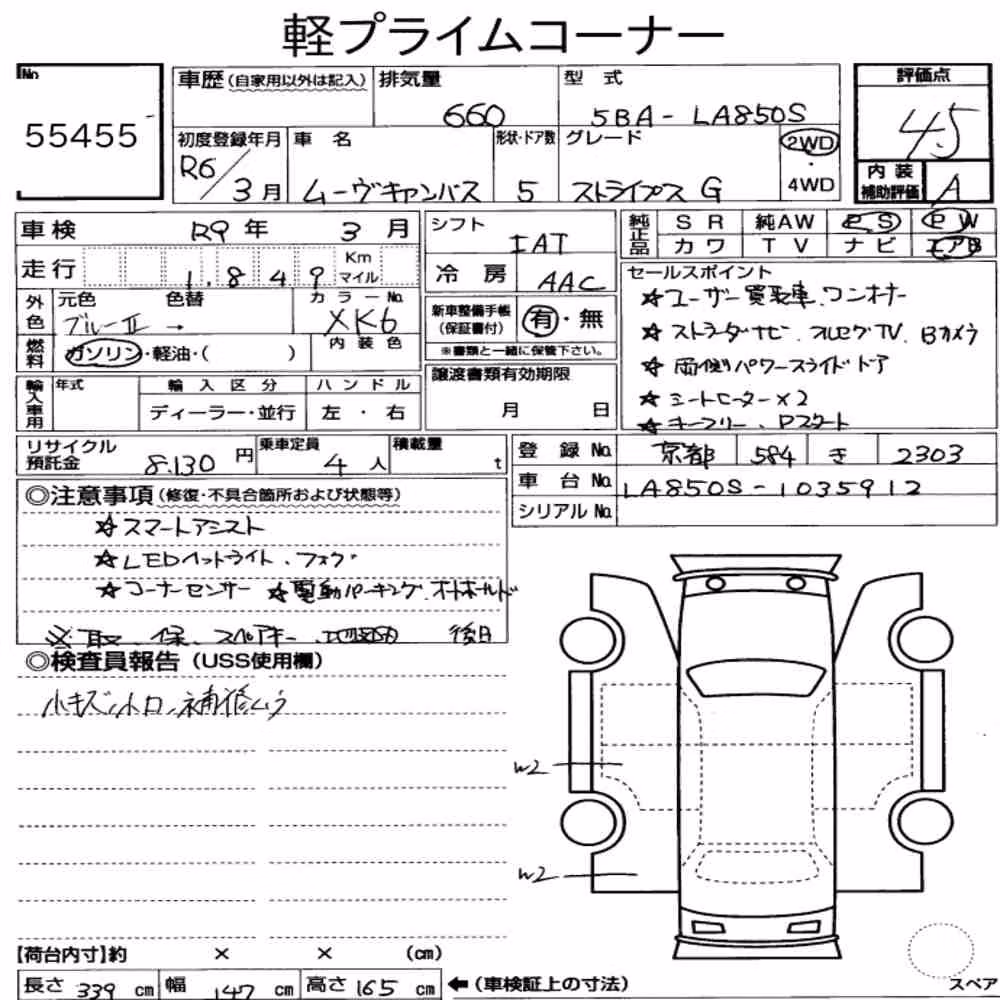 軽プライムコーナー
No.
55455
車歴(自家用以外は記入)
排気量
660
型 式
5BA-LA850S
評価点
4.5
初度登録年月
R6/3月
車 名
ムーヴキャンバス
形状・ドア数
5
グレード
ストライプス G
2WD
・
4WD
内 装
補助評価
A
車検 R9年 3月
走行 1.849
Km
マイル
外色
元色 色替
ブルーII →
カラーNo.
XK6
燃料
ガソリン・軽油・( )
内 装 色
輸入車用
年式
輸 入 区 分
ディーラー・並行
ハ ン ド ル
左 ・ 右
シフト
IAT
冷 房
AAC
新車整備手帳
(保証書付)
有・無
※書類と一緒に保管下さい。
譲渡書類有効期限
月 日
純正品
SR 純AW PS PW
カワ TV ナビ エアB
セールスポイント
☆ユーザー買取車、ワンオーナー
☆ストラーダナビ、フルセグTV、Bカメラ
☆両側パワースライドドア
☆シートヒーター×2
☆キーフリー、Pスタート
リサイクル
預託金
8.130円
乗車定員
4人
積載量
t
登 録 No.
京都 584 き 2303
車 台 No.
LA850S-1035912
シリアル No.
◎注意事項(修復・不具合箇所および状態等)
☆スマートアシスト
☆LEDヘットライト、フォグ
☆コーナーセンサー ☆電動パーキング、オートホールド
※取、保、スペアキー、 後日
◎検査員報告(USS使用欄)
小キズ、 補修ムラ
W2
W2
【荷台内寸】約 × × (cm)
長さ 339 cm 幅 147 cm 高さ 165 cm ←(車検証上の寸法)
スペア